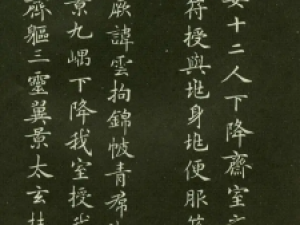 女十二人下降齋室之
符授與兆身兆便服符
厥諱雲拘錦帔青帬
景九嵎下降我室授我
齊軀三靈翼景太玄扶